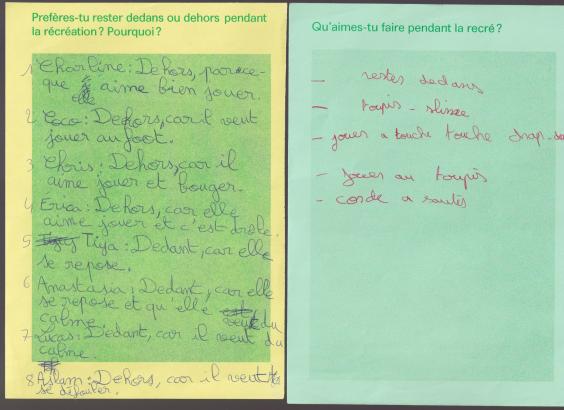 Prefères-tu rester dedans ou dehors pendant
la récréation? Pourquoi?
1 Charline: Dehors, parace-
que elle aime bien jouer.
2 Coco: Dehors, car il veut
jouer au foot.
3 Chris: Dehors, car il
aime jouer et bouger.
4 Erica: Dehors, car elle
aime jouer et c'est drole.
5 Tiya: Dedant, car elle
se repose.
6 Anastasia: Dedant, car elle
se repose et qu'elle veut du
calme.
7 Lucas: Dedant, car il veut du
calme.
8 Aslam: Dehors, car il veut
se défouler.
Qu'aimes-tu faire pendant la recré?
— restes dedans
— toupis - slime
— joues a touche touche
— joues au toupis
— corde a sautés